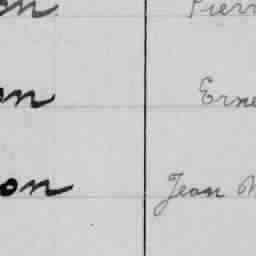 on Pierr
on Erne
on Jean M